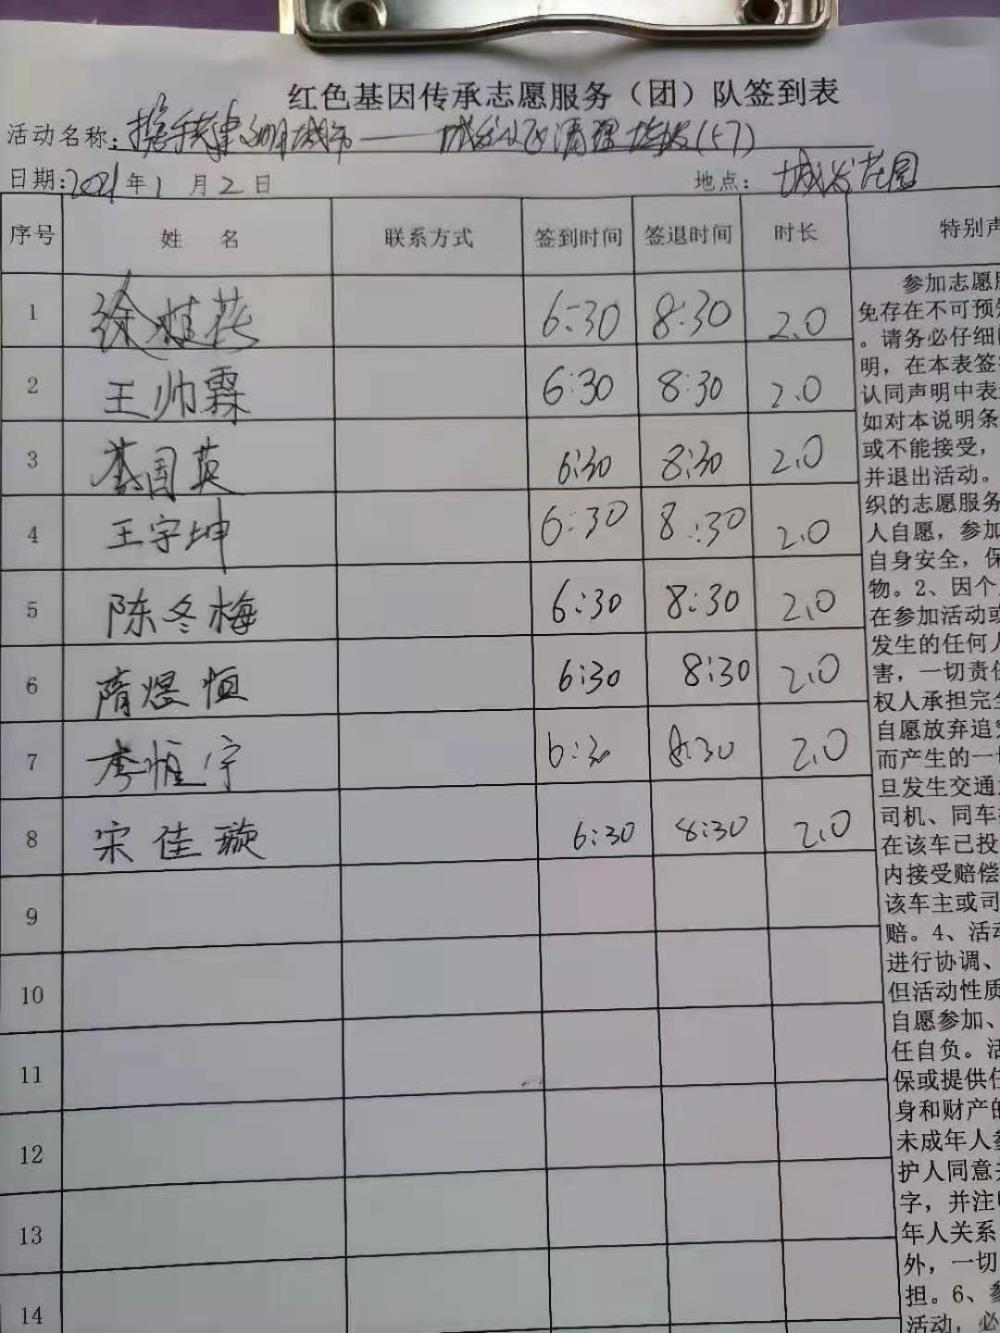 红色基因传承志愿服务（团）队签到表
活动名称：携手共建文明城市——城发社区清理垃圾(57)
日期：2021年1月2日 地点：城发花园
序号 姓 名 联系方式 签到时间 签退时间 时长 特别声
1 徐桂花 6:30 8:30 2.0
2 王帅霖 6:30 8:30 2.0
3 国英 6:30 8:30 2.0
4 王宇坤 6:30 8:30 2.0
5 陈冬梅 6:30 8:30 2.0
6 隋煜恒 6:30 8:30 2.0
7 李恒宇 6:30 8:30 2.0
8 宋佳璇 6:30 8:30 2.0
9
10
11
12
13
14
参加志愿服
免存在不可预知
。请务必仔细阅
明，在本表签名
认同声明中表述
如对本说明条
或不能接受，
并退出活动。
织的志愿服务
人自愿，参加
自身安全，保
物。2、因个
在参加活动或
发生的任何人
害，一切责任
权人承担完全
自愿放弃追究
而产生的一切
旦发生交通
司机、同车
在该车已投
内接受赔偿
该车主或司
赔。4、活动
进行协调、
但活动性质
自愿参加、
任自负。活
保或提供任
身和财产的
未成年人参
护人同意并
字，并注明
年人关系
外，一切
担。6、参
活动，必